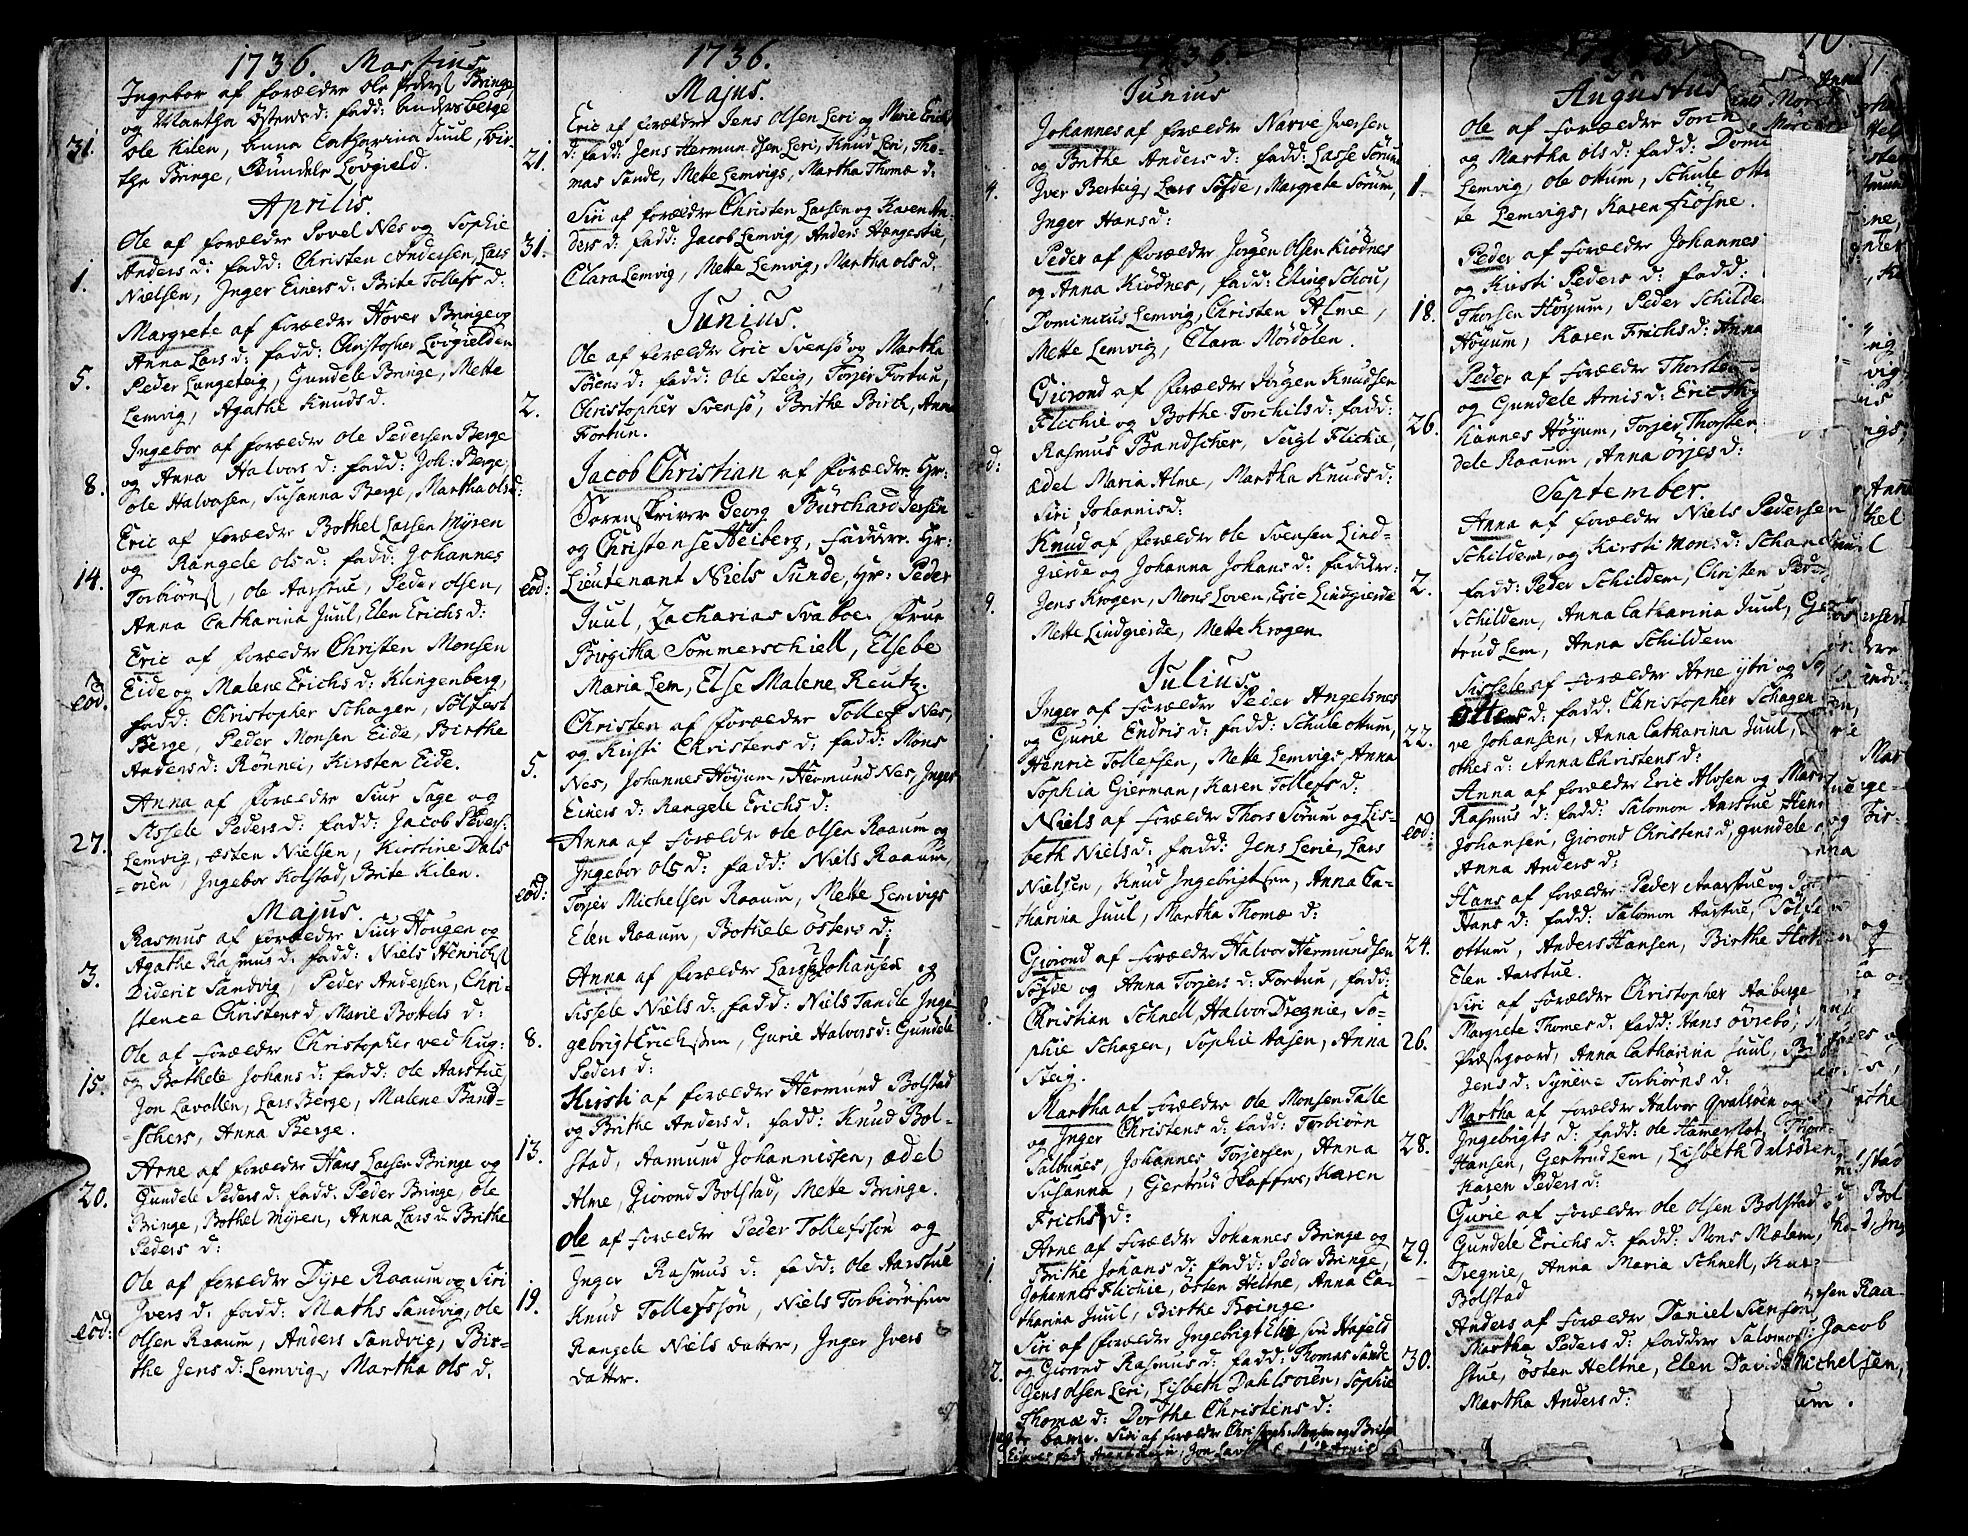 1736. Martius
Ingebor af forældre Ole Peders Bringe
og Martha Østens d: fadd: Anders berge
31. Ole Kilen, Anna Catharina Juul, Bir-
the Bringe, Gundele Løvgield.
Aprilis.
Ole af forældre Sovel Nes og Sophie
1. Anders d: fadd: Christen Andersen, Lars
Nielsen, Inger Einers d. Brite Tollefs d:
Margrete af forældre Hover Bringe og
Anna Lars d: fadd: Christopher Løvgielden
5. Peder Langeteig, Gundele Bringe, Mette
Lemvig, Agathe Knuds d.
Ingebor af forældre Ole Pedersen Berge
og Anna Halvors d: fadd: Joh: Berge,
8. Ole Halvorsen, Susanna Berge, Martha Ols d:
Eric af forældre Bothel Larsen Myren
og Rangele Ols d: fadd: Johannes
14. Torbiørns, Ole Aarstue, Peder Olsen,
Anna Catharina Juul, Elen Erichs d:
Eric af forældre Christen Monsen
eod. Eide og Malene Erichs d: Klingenberg,
fadd: Christopher Schagen, Solfest
Berge, Peder Monsen Eide, Birthe
Anders d: Rønnei, Kirsten Eide.
Anna af forældre Siur Sage og
Sissele Peders d: fadd: Jacob Peders:
27. Lemvig, Østen Nielsen, Kirstine Dals
=øren, Ingebor Kolstad, Brite Kilen.
Majus.
Rasmus af forældre Siur Hougen og
Agathe Rasmus d: fadd: Niels Henrichs
3. Dideric Sandvig, Peder Andersen, Chri-
stence Christens d, Marie Bottels d:
Ole af forældre Christopher ved kug:
og Bothele Johans d: fadd: Ole Aarstue,
15. Jon Lavollen, Lars Berge, Malene Band-
=schers, Anna Berge.
Arne af forældre Hans Larsen Bringe og
20. Gundele Peders d: fadd: Peder Bringe, Ole
Bringe, Bothel Myren, Anna Lars d: Brithe
Peders d:
Ole af forældre Dyre Raaum og Siri
Ivers d: fadd: Maths Sandvig, Ole
eod: Olsen Raaum, Anders Sandvig, Bir-
the Jens d: Lemvig, Martha Ols d.
1736.
Majus.
Eric af forældre Jens Olsen Leri og Marie Erichs
d: fadd: Jens Hermundsen Leri, Knud Leri, Tho-
21. mas Sande, Mette Lemvigs, Martha Thomæ d.
Siri af forældre Christen Larsen og Karen An-
31. ders d: fadd: Jacob Lemvig, Anders Hængestie,
Clara Lemvig, Mette Lemvig, Martha Ols d.
Junius.
Ole af forældre Eric Svensø og Martha
Sørens d: fadd: Ole Steig, Torjer Fortun,
2. Christopher Svensø, Brithe Birch, Anna
Fortun.
Jacob Christian af forældre Hr:
Sorenskriver Georg Burchard Jersin
og Christense Heiberg, faddere Hr:
eod: Lieutenant Niels Sunde, Hr: Peder
Juul, Zacharias Svaboe. Frue
Birgitha Sommerschiell, Elsebe
Maria Lem, Else Malene Reutz.
Christen af forældre Tollef Nes,
og Kirsti Christens d: fadd: Mons
5. Nes, Johannes Høyum, Hermund Nes, Inger
Einers d: Rangele Erichs d:
Anna af forældre Ole Olsen Raaum og
Ingebor Ols d: fadd: Niels Raaum,
eod: Torjer Michelsen Raaum, Mette Lemvigs
Elen Raaum, Bothele Østens d:
Anna af forældre Lars Johansen og
Sissele Niels d: fadd: Niels Tandle Inge
8. gebrigt Erichsen, Gurie Halvors d: Gundele
Peders d:
Kirsti af forældre Hermund Bolstad
og Brithe Anders d: fadd: Knud Bol-
13. stad, Aamund Johannissen, Ædel
Alme, Giørond Bolstad, Mette Bringe.
Ole af forældre Peder Tollefssøn og
Inger Rasmus d: fadd: Ole Aarstue
19. Knud Tollefssøn, Niels Torbiørnsen
Rangele Niels datter, Inger Ivers
datter.
1736.
Junius
Johannes af forældre Narve Iversen
og Brithe Anders d: fadd: Lasse Sørum
4. Iver Berteig, Lars Søfde, Margrete Sørum,
Inger Hans d:
Peder af forældre Jørgen Olsen Kiødnes
og Anna Kiødnes, fadd: Elling Schou,
Dominicus Lemvig, Christen Alme,
Mette Lemvig, Clara Mordølen.
Giørond af forældre Jørgen Knudsen
Flichie og Bothe Torchils d: fadd:
Rasmus Bandscher, Seigl Flichie,
Ædel Maria Alme, Martha Knuds d:
Siri Johannis d:
Knud af forældre Ole Svensen Lind-
gierde og Johanna Johans d: faddere:
9. Jens Krogen, Mons Loven, Eric Lindgierde
Mette Lindgierde, Mette Krogen
Julius.
Inger af forældre Peder Angelsnes
og Gurie Endris d: fadd: Schule Ottum,
Henric Tollefsen, Mette Lemvigs, Anna
Sophia Gierman, Karen Tollefs d:
Niels af forældre Thors Sørum og Lis-
beth Niels d: fadd: Jens Lerie, Lars
Nielsen, Knud Ingebrigtsen, Anna Ca-
tharina Juul, Martha Thomæ d:
Giørond af forældre Halvor Hermundsen
Søfde og Anna Torjers d: Fortun, fadd:
8. Christian Schnell, Halvor Dregnie, So-
phie Schagen, Sophie Aasen, Anna
Steig.
Martha af forældre Ole Monsen Talle
og Inger Christens d: fadd: Torbiørn
Talbunes, Johannes Torjersen, Anna
Susanna, Giertrud Haffere, Karen
Frichs d:
Arne af forældre Johannes Bringe og
Brithe Johans d: fadd: Peder Bringe,
Johannes Flichie, Østen Heltne, Anna Ca-
tharina Juul, Birthe Bringe
Siri af forældre Ingebrigt Elissøn Hafeld
og Giørond Rasmus d: fadd: Thomas Sande
2. Jens Olsen Leri, Lisbeth Dahlsøien, Sophie
Thomæ d: Dorthe Christens d:
barn. Siri af forældre Christoph: Monsen og Brite
Einers fadd: Jon Lav
Augustus
Ole af forældre Torch
og Martha Ols d: fadd: Domi
1. Lemvig, Ole Ottum, Schule Ott
te Lemvigs, Karen Fiøsne.
Peder af forældre Johannes
og Kirsti Peders d: fadd:
18. Thorsen Høyum, Peder Schilde
Høyum, Karen Frichs d: Anna
Peder af forældre Thorsten
og Gundele Arnis d: Eric
26. hannes Høyum, Torjer Thorsten
dele Raaum, Anna Ørjes d:
September.
Anna af forældre Niels Pedersen
Schildem, og Kirsti Mons d: Schan
2. fadd: Peder Schildem, Christen Peder
Schildem, Anna Catharina Juul, Ger
trud Lem, Anna Schildem
Sissele af forældre Arne Ytri og
d: fadd: Christopher Schagen
22. ve Johansen, Anna Catharina Juul,
othes d: Anna Christens d:
Anna af forældre Eric Alvsen og Mar
Rasmus d: fadd: Salomon Aarstue Hen
eod: Johansen, Giørond Christens d, gundele
Anna Anders d:
Hans af forældre Peder Aaarstue og
Hans d: fadd: Salomon Aarstue, Tolfe
24. Ottum, Anders Hansen, Birthe
Elen Aarstue.
Siri af forældre Christopher Haberge
Margrete Thomes d. fadd: Hans Øvrebø,
26. Præstgaard, Anna Catharina Juul,
Jens d: Synøve Torbiørns d:
Martha af forældre Halvor Qvalsøen og
Ingebrigts d: fadd: Ole Hamerslot,
28. Hansen, Gertrud Lem, Lisbeth Dalsøren
Karen Peders d:
Gurie af forældre Ole Olsen Bolstad
29. Gundele Erichs d: fadd: Mons Mælem,
Dregnie, Anna Maria Schnell, Kar
Bolstad
Anders af forældre Daniel Stensøn
Martha Peders d: faddere Salomon
30. stue, Østen Heltne, Elen Davids
Martha Anders d:
Jacob
Michelsen,
um.